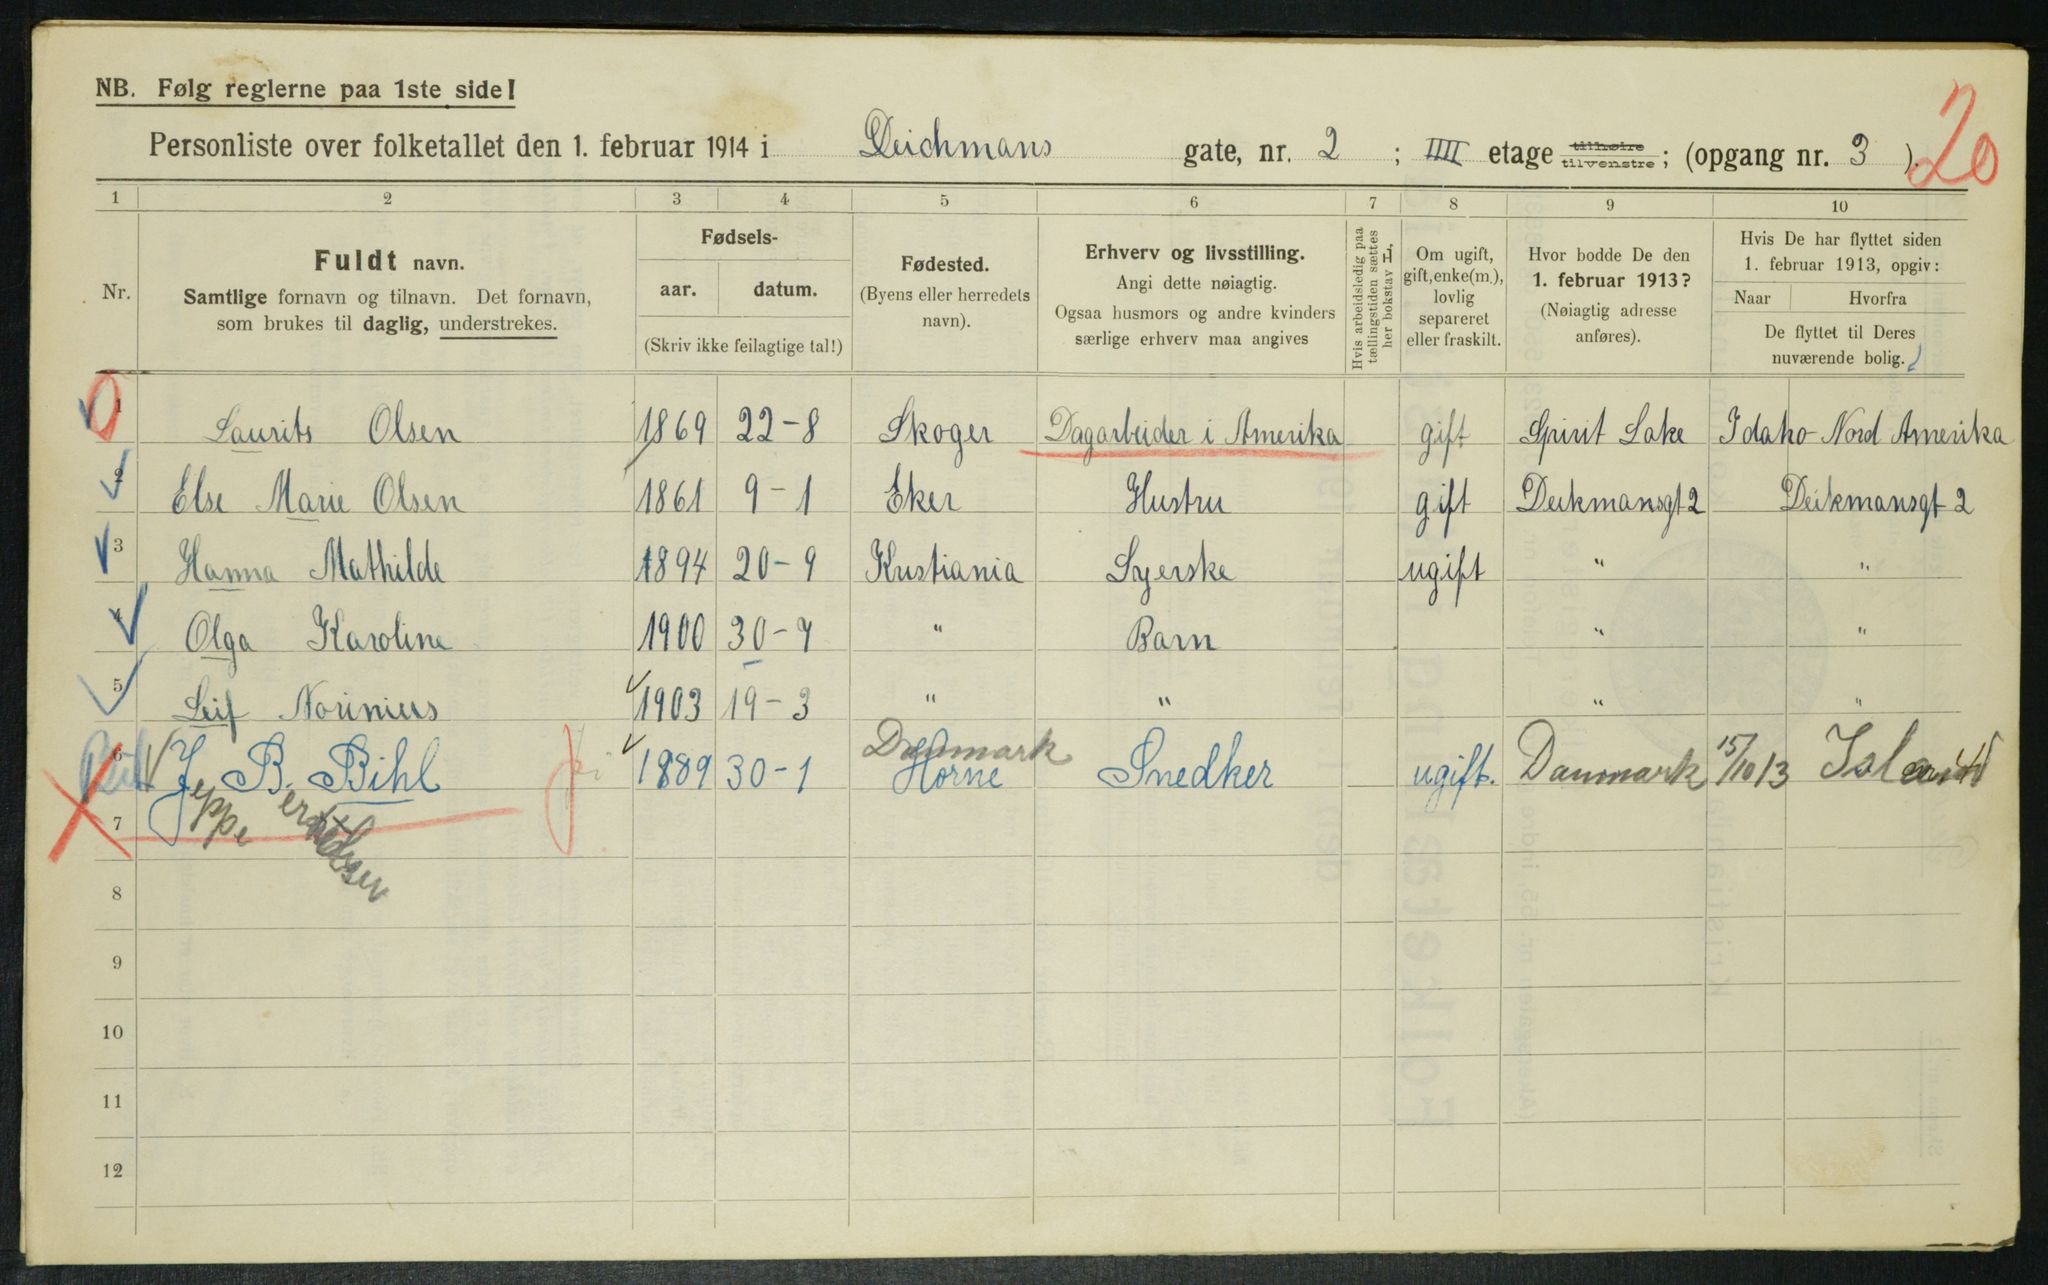 NB. Følg reglerne paa 1ste side!
20
Personliste over folketallet den 1. februar 1914 i Deichmans gate, nr. 2 ; IIII etage tilhøire tilvenstre ; (opgang nr. 3 ).
1 2 3 4 5 6 7 8 9 10
Nr.
Fuldt navn.
Samtlige fornavn og tilnavn. Det fornavn,
som brukes til daglig, understrekes.
Fødsels-
aar. datum.
(Skriv ikke feilagtige tal!)
Fødested.
(Byens eller herredets
navn).
Erhverv og livsstilling.
Angi dette nøiagtig.
Ogsaa husmors og andre kvinders
særlige erhverv maa angives
Hvis arbeidsledig paa
tællingstiden sættes
her bokstav L.
Om ugift,
gift, enke(m.),
lovlig
separeret
eller fraskilt.
Hvor bodde De den
1. februar 1913?
(Nøiagtig adresse
anføres).
Hvis De har flyttet siden
1. februar 1913, opgiv:
Naar Hvorfra
De flyttet til Deres
nuværende bolig.
1 Laurits Olsen 1869 22-8 Skoger Dagarbeider i Amerika gift Spirit Lake Idaho Nord Amerika
2 Else Marie Olsen 1861 9-1 Eker Hustru gift Deikmansgt 2 Deikmansgt 2
3 Hanna Mathilde 1894 20-9 Kristiania Syerske ugift " "
4 Olga Karoline 1900 30-7 " Barn " "
5 Leif Norinius 1903 19-3 " " " "
Danmark
6 J. B. Bihl 1889 30-1 Horne Snedker ugift. Danmark 15/10 13 Island
eppe
7
8
9
10
11
12